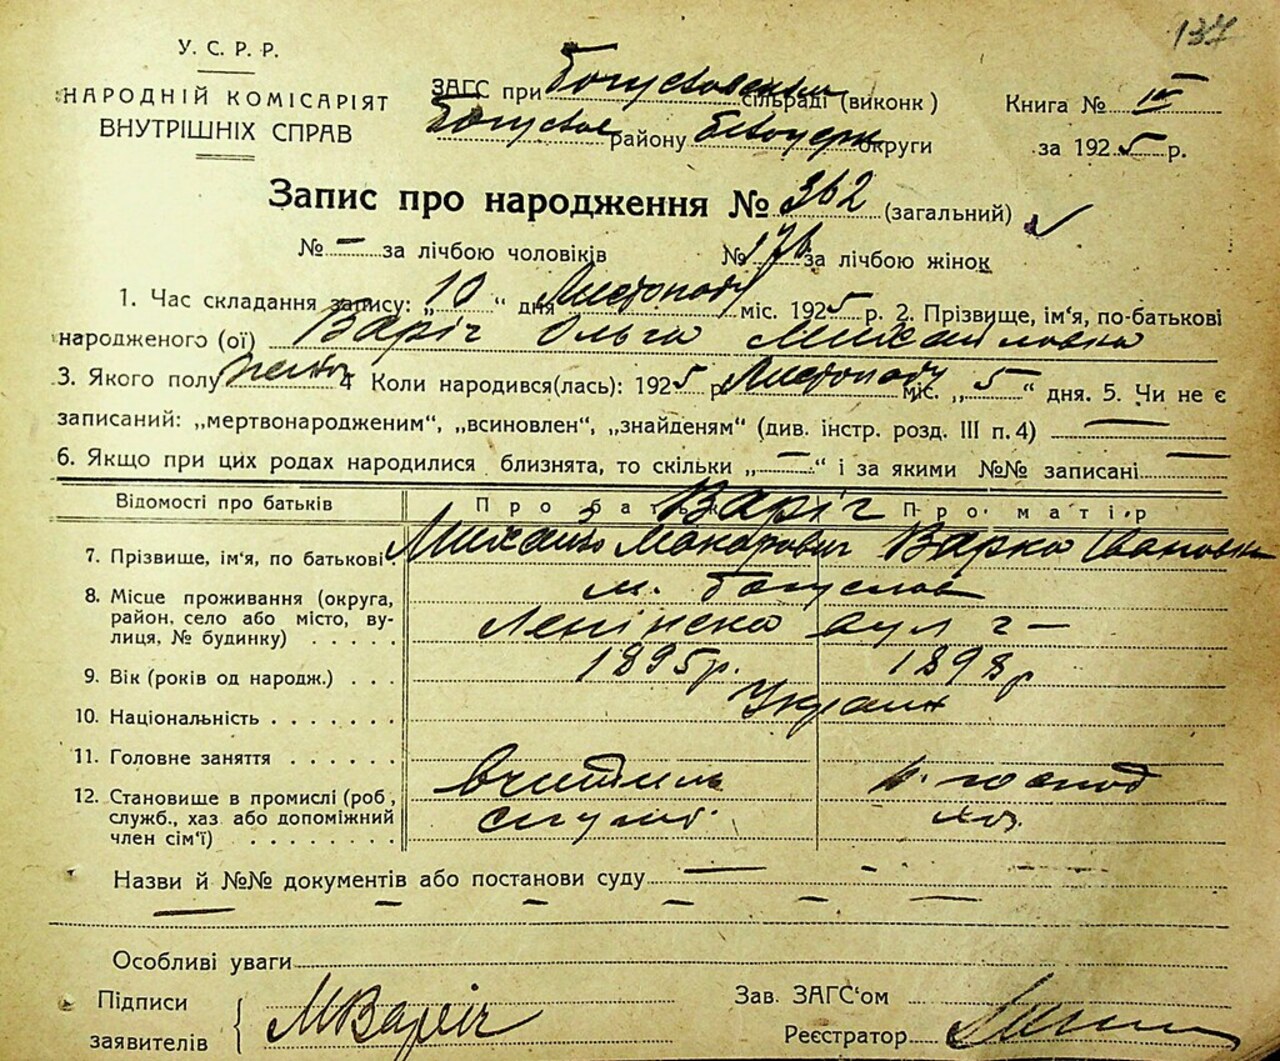 137
У. С. Р. Р.
НАРОДНІЙ КОМІСАРІЯТ
ВНУТРІШНІХ СПРАВ
ЗАГС при Богуславським сільраді (виконк)
Богуслав району Білоцерк округи
Книга № III
за 1925 р.
Запис про народження № 362 (загальний)
№ — за лічбою чоловіків № 176 за лічбою жінок
1. Час складання запису: „10“ дня Листопаду міс. 1925 р. 2. Прізвище, ім'я, по-батькові
народженого (ої) Варіч Ольга Михайловна
3. Якого полу жіноч 4 Коли народився(лась): 1925 р. Листопаду міс. „5“ дня. 5. Чи не є
записаний: „мертвонародженим“, „всиновлен“, „знайденям“ (див. інстр. розд. III п. 4) —
6. Якщо при цих родах народилися близнята, то скільки „—“ і за якими №№ записані —
Відомості про батьків Про батька Варіч Про матір
7. Прізвище, ім'я, по батькові Михайло Макарович Варка Івановна
8. Місце проживання (округа, район, село або місто, вулиця, № будинку) м. Богуслав
Ленінська вул 2 —
9. Вік (років од народж.) 1895 р. 1898 р
10. Національність Украин
11. Головне заняття вчитель д. господ
12. Становище в промислі (роб, служб., хаз або допоміжний член сім'ї) служб. хоз.
Назви й №№ документів або постанови суду — — —
— — — — — —
Особливі уваги
Підписи
заявителів МВаріч
Зав. ЗАГС'ом
Реєстратор